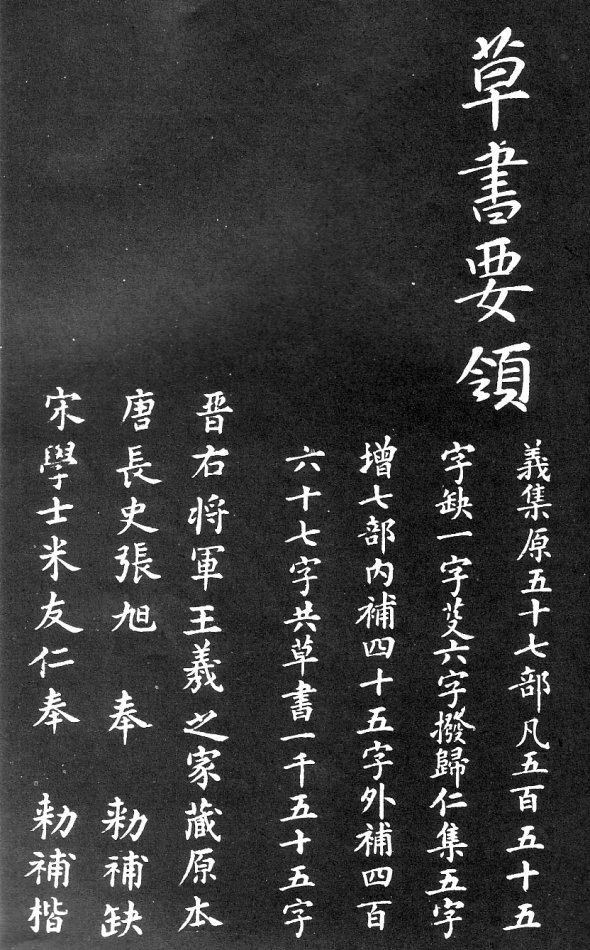 草書要領
義集原五十七部凡五百五十五
字缺一字芟六字撥歸仁集五字
增七部內補四十五字外補四百
六十七字共草書一千五十五字
晋右將軍王羲之家藏原本
唐長史張旭 奉 勑補缺
宋學士米友仁奉 勑補楷